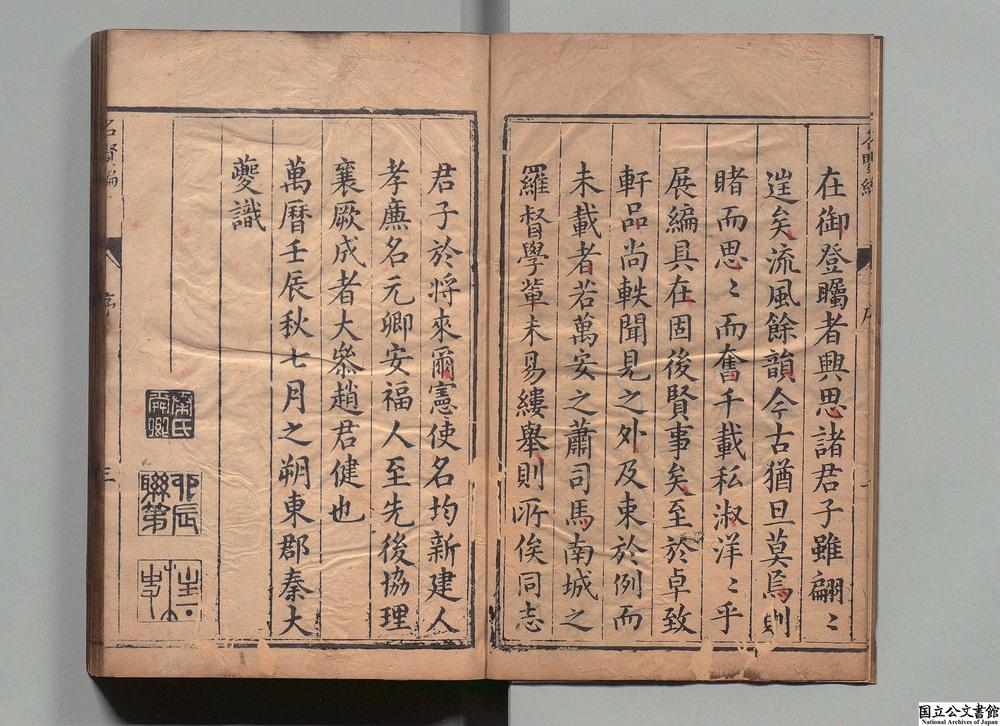 在御登矚者興思諸君子雖翩〻
逞矣流風餘韻今古猶旦莫焉則
睹而思〻而奮千載私淑洋〻乎
展編具在固後賢事矣至於卓致
軒品尚軼聞見之外及束於例而
未載者若萬安之蕭司馬南城之
羅督學軰未易縷舉則所俟同志
君子於將來爾憲使名均新建人
孝廉名元卿安福人至先後協理
襄厥成者大叅趙君健也
萬曆壬辰秋七月之朔東郡秦大
夔識
名賢編
序
三
秦氏
舜卿
丙辰
聯第
国立公文書館
National Archives of Japan